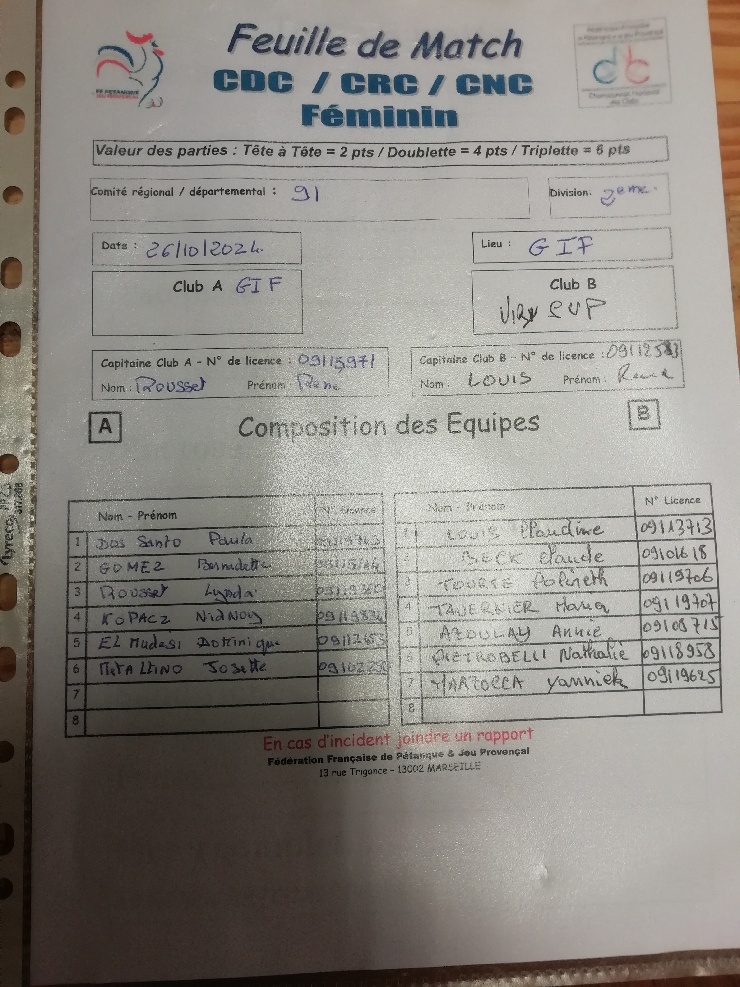 Feuille de Match
CDC / CRC / CNC
Féminin
FF PETANQUE
Championnat National
des Clubs
Valeur des parties : Tête à Tête = 2 pts / Doublette = 4 pts / Triplette = 6 pts
Comité régional / départemental : 91
Division. 2eme.
Date : 26/10/2024.
Lieu : GIF
Club A GIF
Club B
VIRY CVP
Capitaine Club A - N° de licence : 09115971
Nom : Rousset Prénom
Capitaine Club B - N° de licence :
Nom. LOUIS Prénom :
A Composition des Equipes B
Nom - Prénom N° Licence
1 Dos Santo Paula
2 GOMEZ Bernadette
3 Rousset Lynda
4 KOPACZ
5 EL Mudasi Dominique
6 Josette
7
8
Nom - Prénom N° Licence
1 LOUIS Claudine 09113713
2 BECK Claude 09101618
3 09119706
4 TAVERNIER 09119707
5 AZOULAY Annie 09105715
6 PIETROBELLI Nathalie 09118958
7 Yannick 09119625
8
En cas d'incident joindre un rapport
Fédération Française de Pétanque & Jeu Provençal
13 rue Trigance - 13002 MARSEILLE